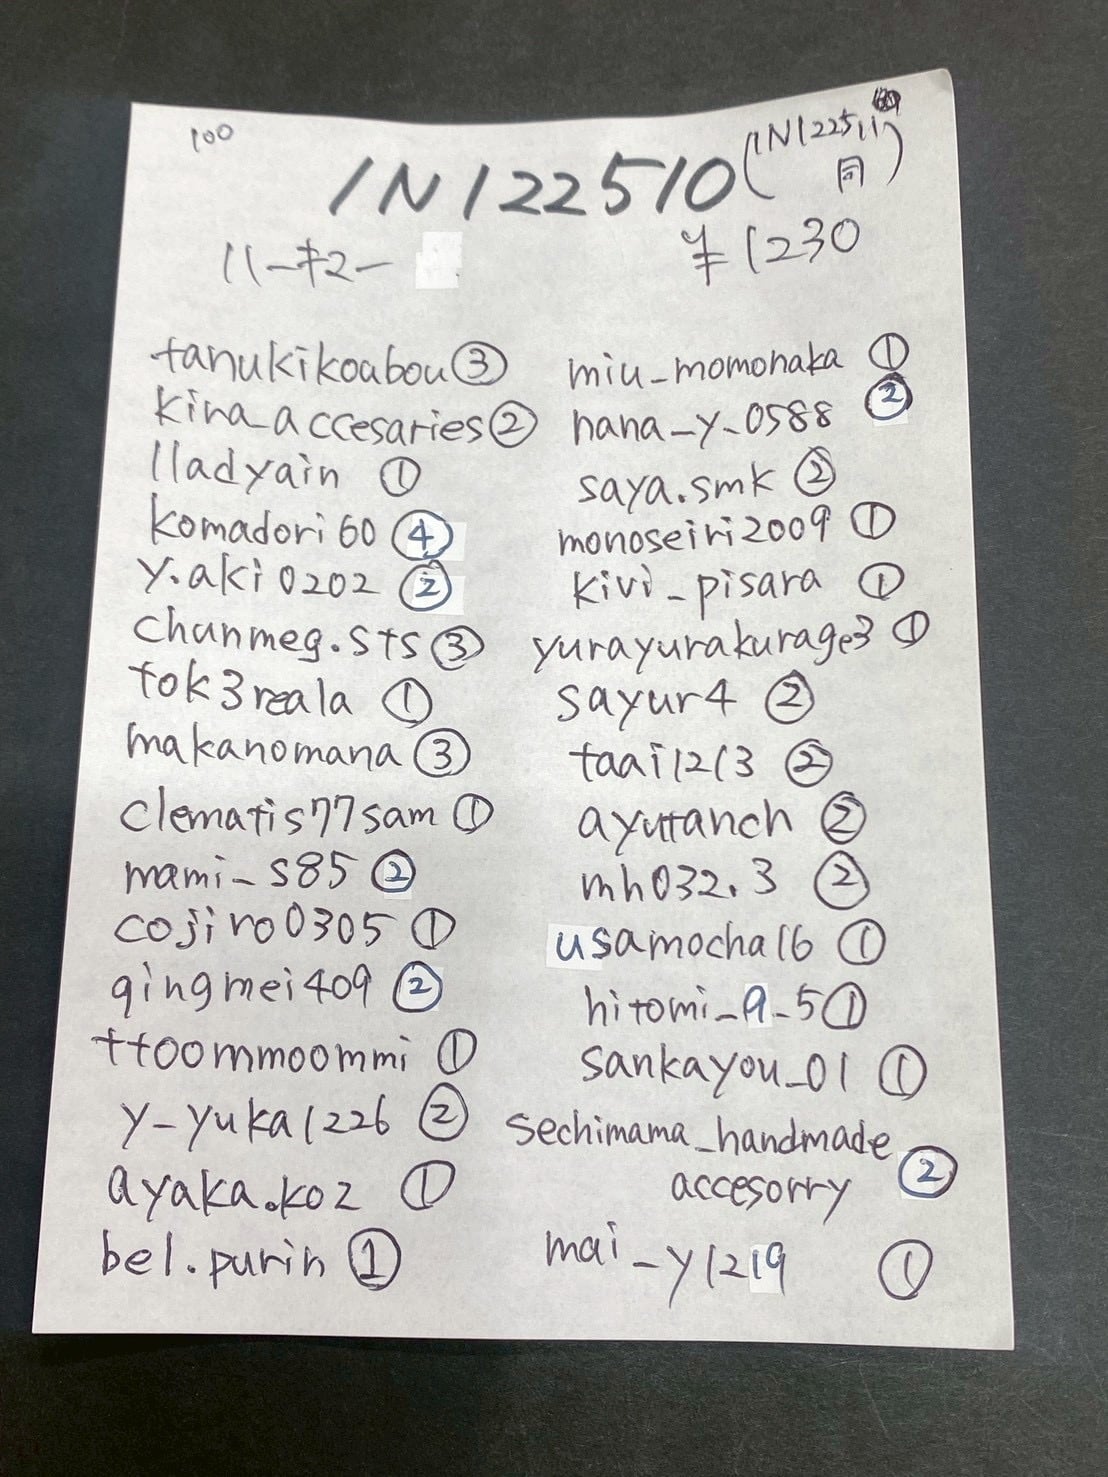 100
IN122510
(IN122511
同)
¥1230
tanukikoubou③
kira_accesaries②
lladyain ①
komadori60④
y.aki0202②
chunmeg.sts③
tok3reala ①
makanomana③
clematis77sam①
mami_s85②
cojiro0305①
qingmei409②
ttoommoommi①
y_yuka1226②
ayaka.koz ①
bel.purin①
miu_momonaka①
nana_y_0588②
saya.smk②
monoseiri2009①
kivi_pisara①
yurayurakurage3①
sayur4②
taai1213②
ayuttanch②
mh032.3②
usamocha16①
hitomi_9_5①
sankayou_01①
sechimama_handmade
accesorry②
mai_y1219①